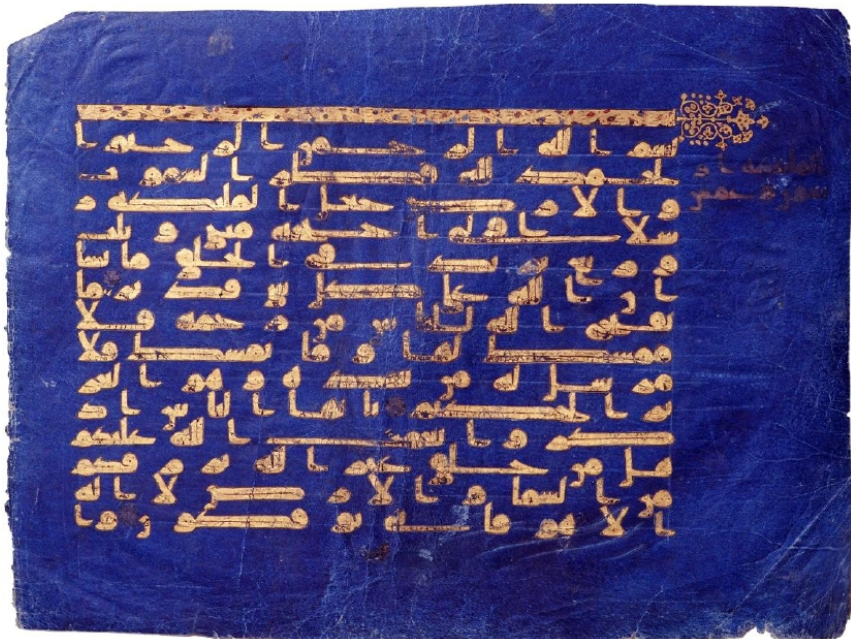 بسم الله الرحمن الرحيم ا
لحمد لله فطر السموت
والارض جعل الملئكة ر
سلا اولى اجنحة مثنى وثلث
وربع يزيد فى الخلق ما يشا
ان الله على كل شى قدير ما
يفتح الله للناس من رحمة فلا
ممسك لها وما يمسك فلا
مرسل له من بعده وهو العز
يز الحكيم يايها الناس اذ
كروا نعمت الله عليكم
هل من خلق غير الله يرزقكم
من السما والارض لا اله
الا هو فانى توفكون وا
الملئكة
سورة